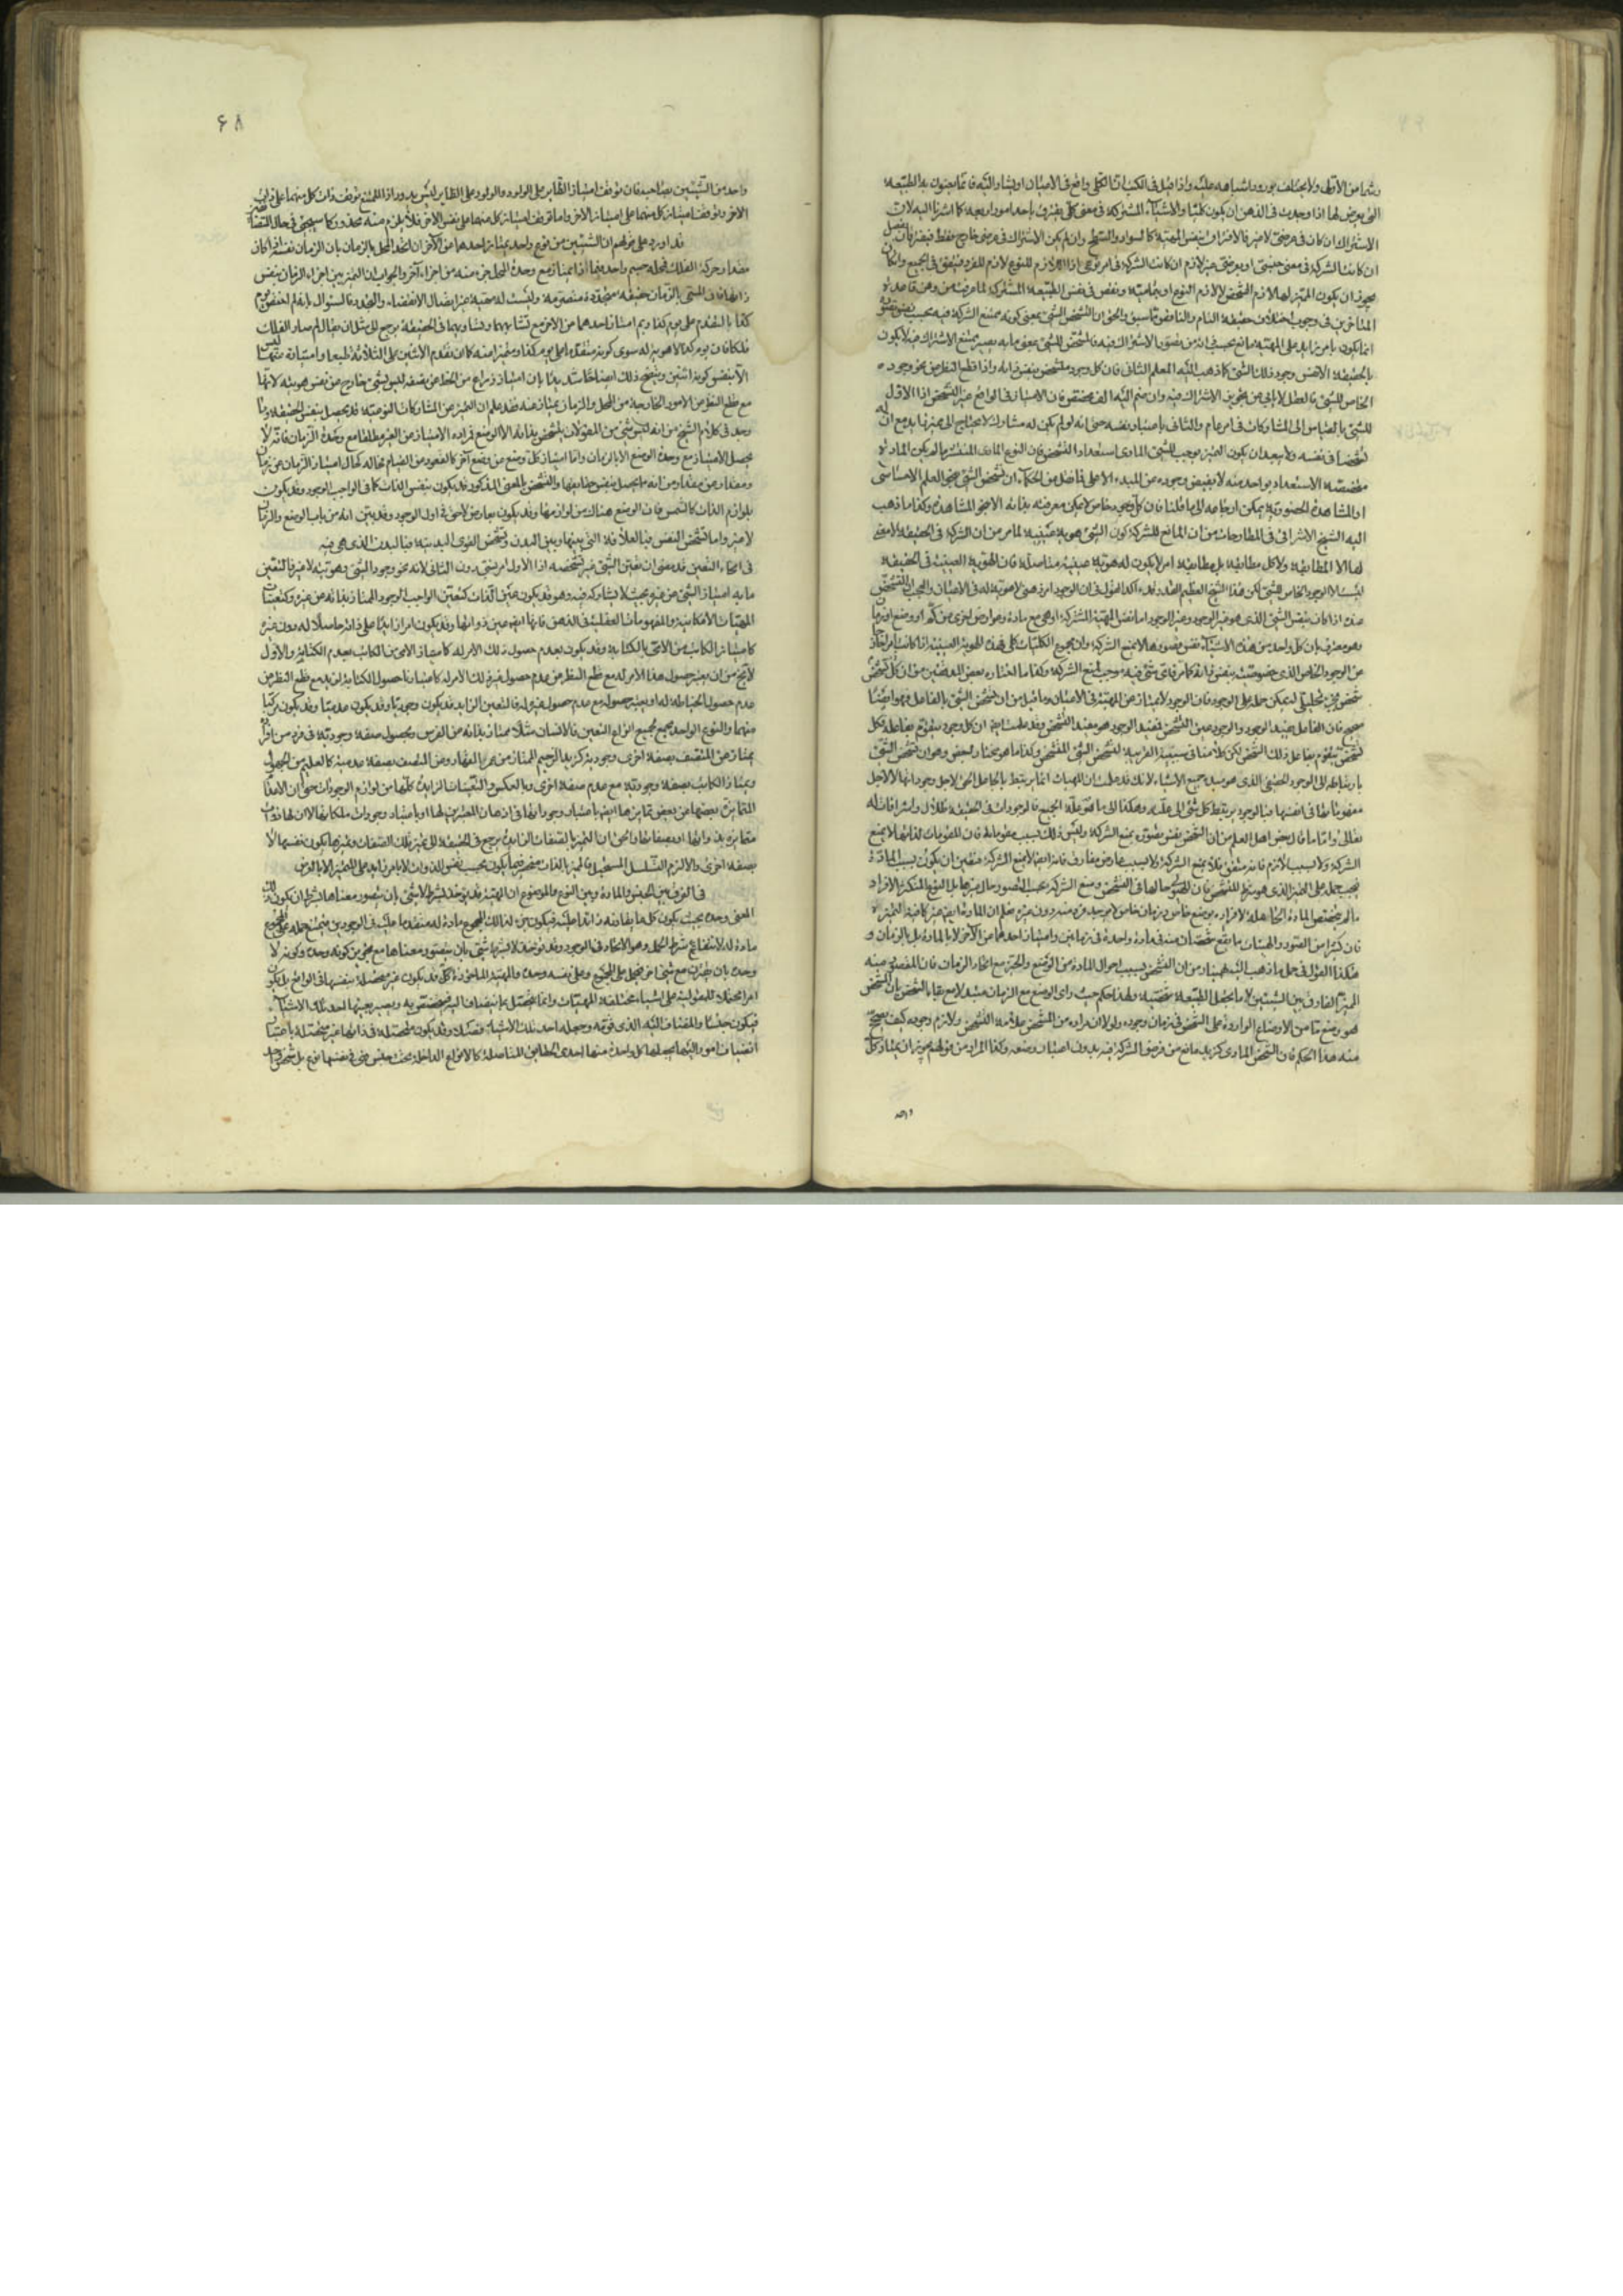 التي يعرض لها اذا وجدت في الذهن ان يكون كليا والاشياء المشتركة في معنى كلي يفترق باحد امور اربعة كما اشرنا اليه لان
الاشتراك ان كان في عرضي لا غير فالافتراق بنفس المهية كالسواد والسطح وان لم يكن الاشتراك في عرضي خارج فقط فيفترقان بفصل
ان كانت الشركة في معنى جنسي او بعرضي غير لازم ان كانت الشركة في امر نوعي اذ اللازم للنوع لازم للفرد فيتفق في الجميع وان كان
يجوز ان يكون المميز لها لازم الشخص لا لازم النوع او بتمامية ونقص في نفس الطبيعة المشتركة لما عرفت من وهن قاعدة
المتاخرين في وجوب اختلاف حقيقة التام والناقص مما سبق والحق ان تشخص الشيء بمعنى كونه ممتنع الشركة فيه بحسب نفس تصوره
انما يكون بامر زايد على المهية مانع بحسب ذاته من تصور الاشتراك فيه فالمشخص للشيء بمعنى ما به يصير ممتنع الاشتراك فيه لا يكون
بالحقيقة الا نفس وجود ذلك الشيء كما ذهب اليه المعلم الثاني فان كل وجود متشخص بنفس ذاته واذا قطع النظر عن نحو وجوده
الخاص للشيء فالعقل لا يابى عن تجويز الاشتراك فيه وان ضم اليه الف مخصص فان الامتياز في الواقع غير التشخص اذ الاول
للشيء بالقياس الى المشاركات في امر عام والثاني باعتباره في نفسه حتى انه لو لم يكن له مشارك لا يحتاج الى مميز زايد مع ان له
تشخصا في نفسه ولا يبعد ان يكون التميز يوجب للشيء المادي استعداد التشخص فان النوع المادي المنتشر ما لم يكن المادة
متخصصة الاستعداد بواحد منه لا يفيض وجوده عن المبدء الاعلى فما نقل عن الحكماء ان تشخص الشيء بنحو العلم الاحساسي
او المشاهدة الحضورية يمكن ارجاعه الى ما قلنا فان كل وجود خاص لا يمكن معرفته بذاته الا بنحو المشاهدة وكذا ما ذهب
اليه الشيخ الاشراقي في المطارحات من ان المانع للشركة كون الشيء هوية عينية لما مر من ان الشركة في الحقيقة لا معنى
لها الا المطابقة ولا كل مطابقة بل مطابقة امر لا يكون له هوية عينية متاصلة فان الهوية العينية في الحقيقة
ليست الا الوجود الخاص للشيء لكن هذا الشيخ العظيم القدر قد اكد القول في ان الوجود امر ذهني لا هوية له في الاعيان والعجب ان التشخص
عنده اذا كان بنفس الشيء الذي هو غير الوجود وغير الوجود اما نفس المهية المشتركة او هي مع مادة وعوارض اخرى من كم او وضع او زمان
وهو معترف بان كل واحد من هذه الاشياء نفس تصورها لا يمنع الشركة وان مجموع الكليات كلي فهذه الهوية العينية اذا كانت امرا خارجا
عن الوجود الخاص الذي خصوصيته بنفس ذاته
متشخص جزء تحليلي له يمكن حمله على الوجود فان الوجود لا يمتاز عن المهية في الاعيان وما قيل من ان تشخص الشيء بالفاعل فهو ايضا
صحيح فان الفاعل مفيد الوجود والوجود عين التشخص فمفيد الوجود هو مفيد التشخص وقد علمت ايضا ان كل وجود يتقوم بفاعله فكل
تشخص يتقوم بفاعل ذلك التشخص لكن كلامنا في سببية القريبة لتشخص الشيء المتشخص وكذا ما هو مختار لبعض وهو ان تشخص الشيء
بارتباطه الى الوجود الحقيقي الذي هو مبدء جميع الاشياء لانك قد علمت ان المهيات انما يرتبط بالجاعل الحق لاجل وجوداتها لا لاجل
مفهوماتها في انفسها فبالوجود يرتبط كل شيء الى علته وهكذا الى ما هو علة الجميع فالوجودات في الحقيقة ظلال واشراقات له
تعالى واما ما قال بعض اهل العلم من ان التشخص نفس تصوره يمنع الشركة وليس ذلك بسبب مقوماته فان المقومات لذاتها لا يمنع
الشركة ولا بسبب لازم فانه متفق فلا يمنع الشركة ولا بسبب عارض مفارق فانه ايضا لا يمنع الشركة فتعين ان يكون بسبب المادة
فيجب حمله على التميز الذي هو شرط للتشخص فان الهيولى حالها في التشخص ومنع الشركة بحسب التصور حال غيرها بل النوع المتكثر الافراد
ما لم يتخصص المادة الحاملة لافراده بوضع خاص وزمان خاص لا يوجد فرد منه دون غيره ثم ان المادة ايضا غير كافية للتميز
فان كثيرا من الصور والهيئات ما يقع شخصان منه في مادة واحدة في زمانين وامتياز احدهما عن الآخر لا بالمادة بل بالزمان و
هكذا القول في حمل ما ذهب اليه بهمنيار من ان التشخص بسبب احوال المادة من الوضع والحيز مع اتحاد الزمان فان المقصود منه
المميز الفارق بين الشيئين لا ما يجعل الطبيعة شخصية ولهذا حكم حيث راى الوضع مع الزمان متبدلا مع بقاء الشخص بان المشخص
هو وضع ما من الاوضاع الواردة على الشخص في زمان وجوده ولولا ان مراده من المشخص علامة التشخص ولازم وجوده كيف يصح
منه هذا الحكم فان الشخص المادي كزيد مانع من فرض الشركة فيه بدون اعتبار وضعه وكذا المراد من قولهم يجوز ان يمتاز كل
واحد
۶۸
واحد من الشيئين بصاحبه فان توقف امتياز
الآخر وتوقف امتياز كل منهما على امتياز الآخر واما توقف امتياز كل منهما على نفس الآخر فلا يلزم منه محذور كما سيجيء في حال المتضايفين
قد اورد على قولهم ان الشيئين من نوع واحد يمتاز احدهما عن الآخر ان اتحد المحل بالزمان بان الزمان نفسه اذا كان
مقدار حركة الفلك فمحله جسم واحد فبما ذا يمتاز مع وحدة المحل جزء منه من اجزاء آخر والجواب ان التميز بين اجزاء الزمان بنفس
ذاتها فان المسمى بالزمان حقيقة متجددة متصرمة وليست له مهية غير اتصال الانقضاء والتجدد فالسؤال بانه لم اختص يوم
كذا بالتقدم على يوم كذا وبم امتاز احدهما عن الآخر مع تشابههما وتساويهما في الحقيقة يرجع الى مثل ان يقال لم صار الفلك
فلكا فان يوم كذا لا هوية له سوى كونه متقدما على يوم كذا ومتميزا عنه كما ان تقدم الاثنين على الثلاثة طبعا وامتيازه عنها ليس
الا بنفس كونه اثنين ويتضح ذلك ايضاحا شديدا بان امتياز ذراع من الخط عن نصفه ليس بشيء خارج عن نفس هويته لانها
مع قطع النظر عن الامور الخارجية من المحل والزمان يمتاز عنه فقد علم ان التميز عن المشاركات النوعية قد يحصل بنفس الحقيقة وما
وجد في كلام الشيخ من انه ليس شيء من المقولات يتشخص بذاته الا الوضع فمراده الامتياز عن الغير مطلقا مع وحدة الزمان فانه لا
يحصل الامتياز مع وحدة الوضع الا بالزمان واما امتياز كل وضع عن وضع آخر كالقعود عن القيام فحاله كحال امتياز الزمان عن زمان
ومقدار عن مقدار من انه ما يحصل بنفس حقايقها والتشخص بالمعنى المذكور قد يكون بنفس الذات كما في الواجب الوجود وقد يكون
بلوازم الذات كالشمس فان الوضع هناك من لوازمها وقد يكون بعارض لاحق في اول الوجود وقد تبين انه من باب الوضع والزمان
لا غير واما تشخص النفس فبالعلاقة التي بينها وبين البدن وتشخص القوى البدنية فبالبدن الذي هي فيه
في انحاء التعين قد مضى ان تعين الشيء غير تشخصه اذ الاول امر نسبي دون الثاني لانه نحو وجود الشيء وهويته لا غير فالتعين
ما به امتياز الشيء عن غيره بحيث لا يشاركه فيه وهو قد يكون عين الذات كتعين الواجب الوجود الممتاز بذاته عن غيره وكتعينات
المهيات الامكانية والمفهومات العقلية في الذهن فانها ايضا عين ذواتها وقد يكون امرا زايدا على ذاته حاصلا له دون غيره
كامتياز الكاتب من الامي بالكتابة وقد يكون بعدم حصول ذلك الامر له كامتياز الامي من الكاتب بعدم الكتابة والاول
لا يخ من ان يعتبر حصول هذا الامر له مع قطع النظر عن عدم حصول غير ذلك الامر له كاعتبارنا حصول الكتابة لزيد مع قطع النظر عن
عدم حصول الخياطة له او يعتبر حصوله مع عدم حصول غيره له فالتعين الزايد قد يكون وجوديا وقد يكون عدميا وقد يكون مركبا
منهما والنوع الواحد يجمع لجميع انواع التعين فالانسان مثلا ممتاز بذاته عن الفرس وبحصول صفة وجودية في فرد من افراده
يمتاز عن المتصف بصفة اخرى وجودية كزيد الرحيم الممتاز عن عمرو القهار وعن المتصف بصفة عدمية كالعليم من الجهول
ويمتاز الكاتب بصفة وجودية مع عدم صفة اخرى وبالعكس والتعينات الزايدة كلها من لوازم الوجودات حتى ان الاعدام
المتمايزة بعضها عن بعض تمايزها ايضا باعتبار وجوداتها في اذهان المعتبرين لها او باعتبار وجودات ملكاتها لا ان لها ذوات
متمايزة بذواتها او صفاتها والحق ان التميز بالصفات الزايدة يرجع في الحقيقة الى تميز تلك الصفات وتميزها يكون بنفسها لا
بصفة اخرى والا لزم التسلسل المستحيل فالتميز بالذات منحصر فيما يكون بحسب نفس الذوات لا بامر زايد على المتميز الا بالعرض
في الفرق بين الجنس والمادة وبين النوع والموضوع ان المهية قد يؤخذ بشرط لا شيء بان يتصور معناها بشرط ان يكون ذلك
المعنى وحده بحيث يكون كل ما يقارنه زايدا عليه فيكون جزءا لذلك المجموع مادة له متقدما عليه في الوجودين فيمتنع حمله على المجموع
مادة له لانتفاء شرط الحمل وهو الاتحاد في الوجود وقد يؤخذ لا بشرط شيء بان يتصور معناها مع تجويز كونه وحده وكونه لا
وحده بان يقترن مع شيء آخر فيحمل على المجموع وعلى نفسه وحده والمهية الماخوذة كذلك قد يكون غير متحصلة بنفسها في الواقع بل يكون
امرا محتملا للمقولية على اشياء مختلفة المهيات وانما يتحصل بما ينضاف اليه فيتخصص به ويصير بعينها احد تلك الاشياء
فيكون جنسا والمنضاف اليه الذي قومه وجعله احد تلك الاشياء فصلا وقد يكون متحصلة في ذاتها غير متحصلة باعتبار
انضياف امور اليها يجعلها كل واحدة منها احدى الحقايق المتاصلة كالانواع الداخلة تحت جنس